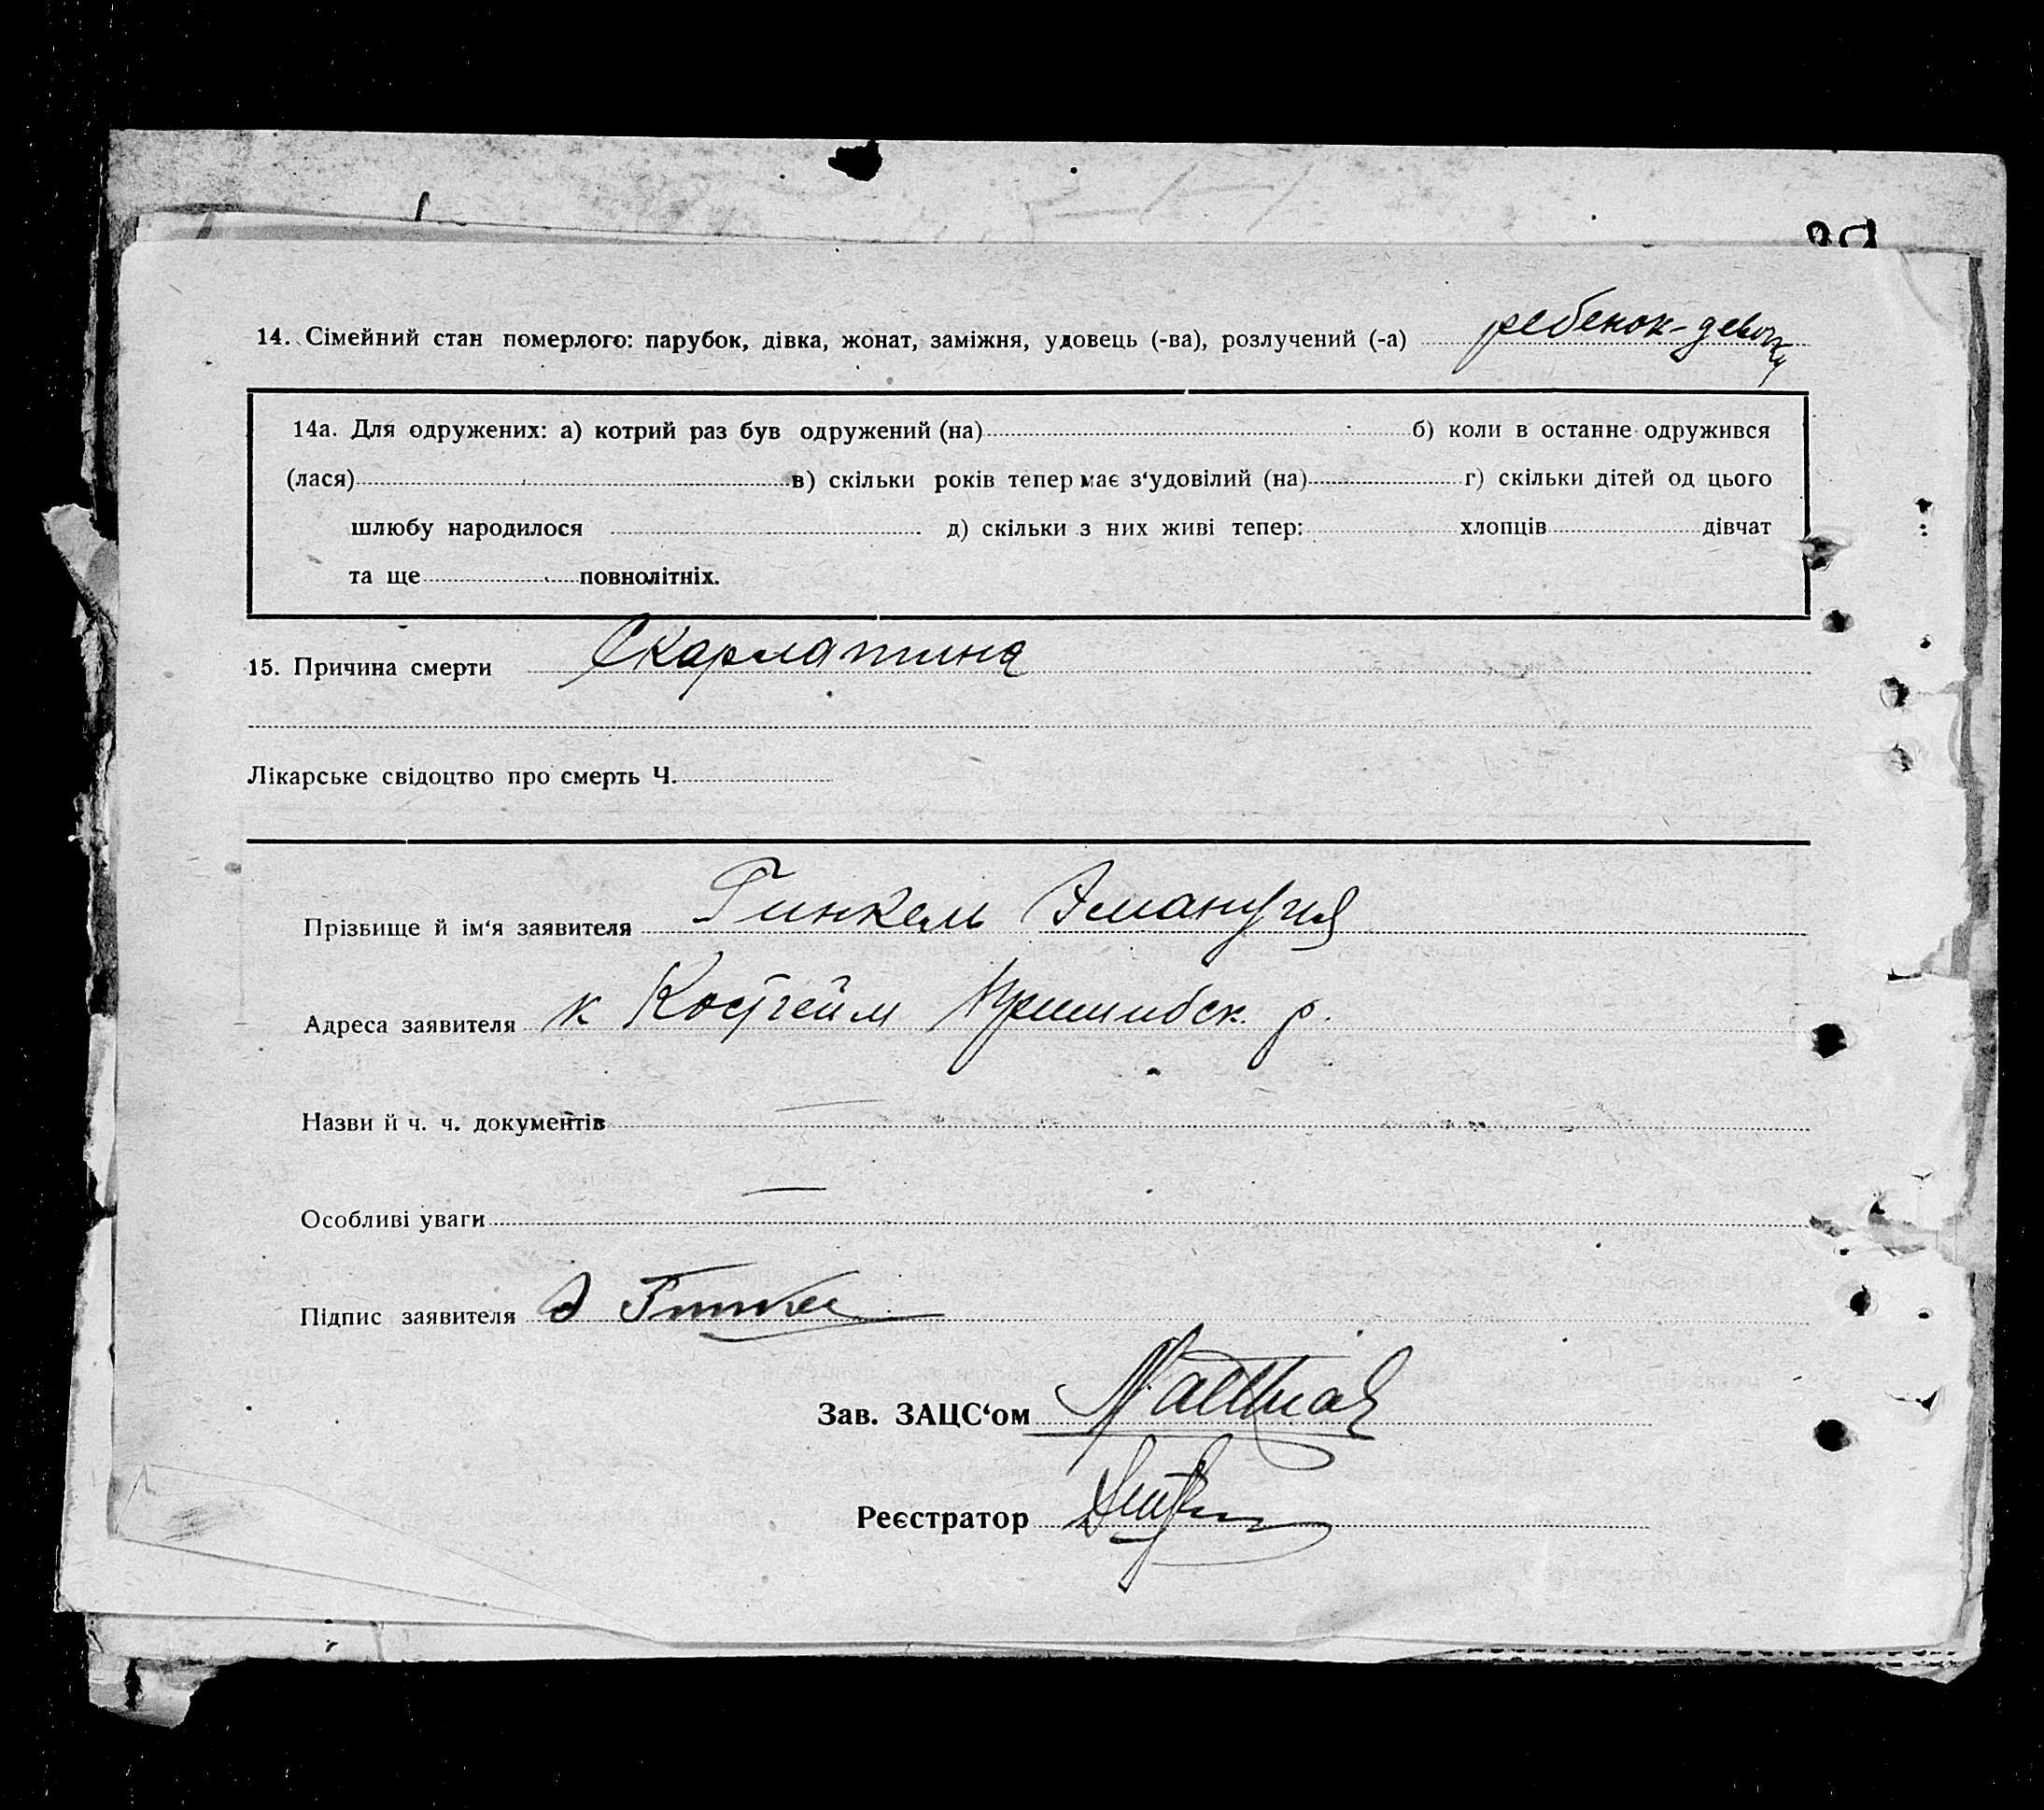 14. Сімейний стан померлого: парубок, дівка, жонат, заміжня, удовець (-ва), розлучений (-а) ребенок-девочка
14а. Для одружених: а) котрий раз був одружений (на) б) коли в останнє одружився
(лася) в) скільки років тепер має з‘удовілий (на) г) скільки дітей од цього
шлюбу народилося д) скільки з них живі тепер: хлопців дівчат
та ще повнолітніх.
15. Причина смерти Скарлатина
Лікарське свідоцтво про смерть Ч.
Прізвище й ім‘я заявителя Гинкель Эмануил
Адреса заявителя к Костгейм Пришибск. р.
Назви й ч. ч. документів —
Особливі уваги —
Підпис заявителя Э Гинкел
Зав. ЗАЦС‘ом Matthias
Реєстратор